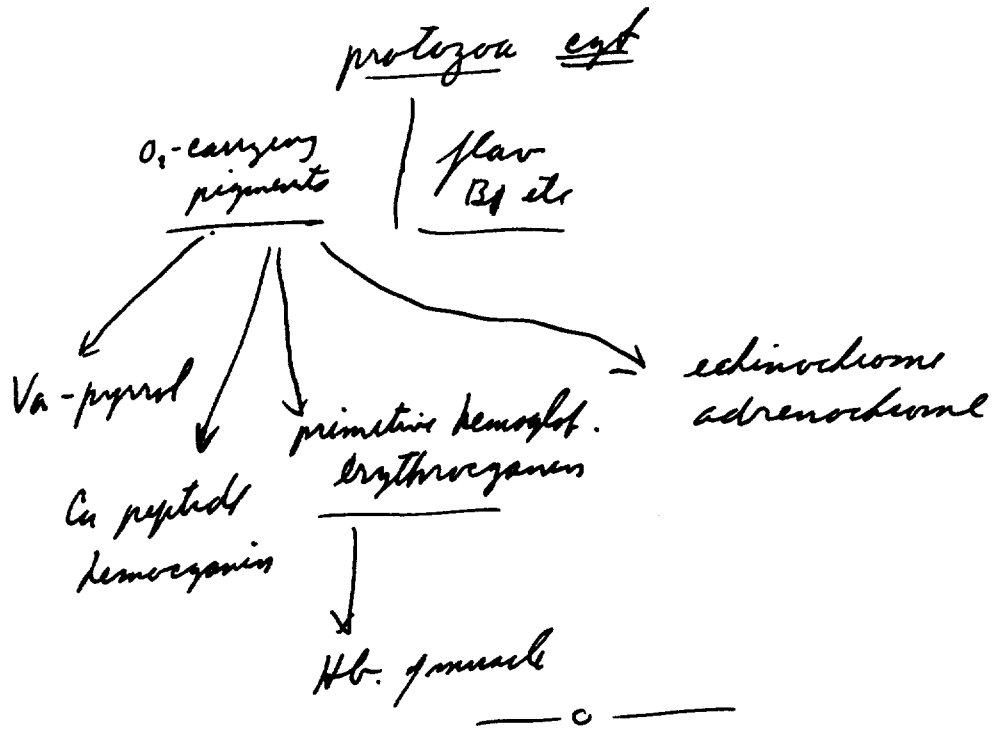 protozoa cyt
O₂-carrying
pigments
flav
B₁ etc
Va-pyrrol
Cu peptide
hemocyanin
primitive hemoglob.
erythrocyanin
echinochrome
adrenochrome
Hb. of muscle